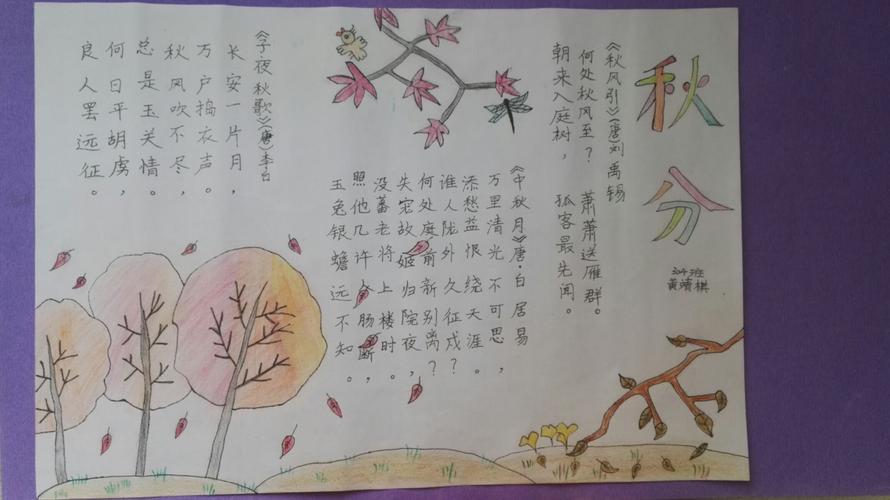 秋分
304班
黄靖棋
《秋风引》(唐)刘禹锡
何处秋风至？萧萧送雁群。
朝来入庭树，孤客最先闻。
《中秋月》唐·白居易
万里清光不可思，
添愁益恨绕天涯。
谁人陇外久征戍？
何处庭前新别离？
失宠故姬归院夜，
没蕃老将上楼时。
照他几许人肠断，
玉兔银蟾远不知。
《子夜秋歌》(唐)李白
长安一片月，
万户捣衣声。
秋风吹不尽，
总是玉关情。
何日平胡虏，
良人罢远征。